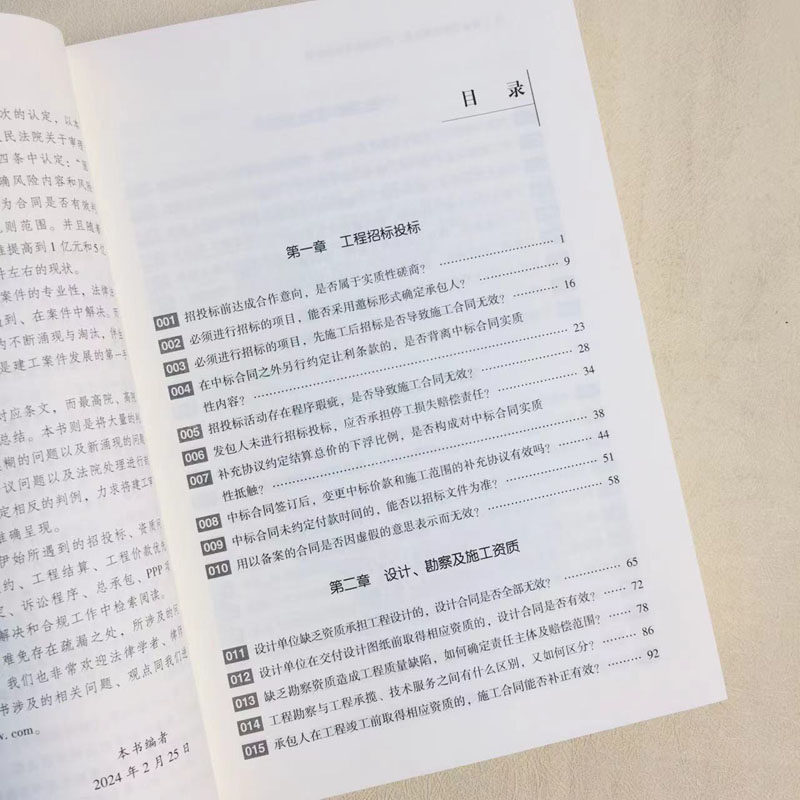 次的认定，以本
民法院关于审理
四条中认定：“
确风险内容和风险
为合同是否有效
则范围。并且随着
准提高到1亿元和5亿
件左右的现状。
案件的专业性，法律
到、在案件中解决。
为不断涌现与淘汰，
是建工案件发展的第一手
对应条文，而最高院、高
总结。本书则是将大量的
糊的问题以及新涌现的问题
议问题以及法院处理进行
定相反的判例，力求将建工
准确呈现。
伊始所遇到的招投标、资质
约、工程结算、工程价款优
定、诉讼程序、总承包、PPP
解决和合规工作中检索阅读。
难免存在疏漏之处，所涉及的
我们也非常欢迎法律学者、律师
书涉及的相关问题、观点同我们
w. com。
本书编者
2024年2月25日
目 录
第一章 工程招标投标
001 招投标前达成合作意向，是否属于实质性磋商？ 1
002 必须进行招标的项目，能否采用邀标形式确定承包人？ 9
003 必须进行招标的项目，先施工后招标是否导致施工合同无效？ 16
004 在中标合同之外另行约定让利条款的，是否背离中标合同实质
性内容？ 23
005 招投标活动存在程序瑕疵，是否导致施工合同无效？ 28
006 发包人未进行招标投标，应否承担停工损失赔偿责任？ 34
007 补充协议约定结算总价的下浮比例，是否构成对中标合同实质
性抵触？ 38
008 中标合同签订后，变更中标价款和施工范围的补充协议有效吗？ 44
009 中标合同未约定付款时间的，能否以招标文件为准？ 51
010 用以备案的合同是否因虚假的意思表示而无效？ 58
第二章 设计、勘察及施工资质
011 设计单位缺乏资质承担工程设计的，设计合同是否全部无效？ 65
012 设计单位在交付设计图纸前取得相应资质的，设计合同是否有效？ 72
013 缺乏勘察资质造成工程质量缺陷，如何确定责任主体及赔偿范围？ 78
014 工程勘察与工程承揽、技术服务之间有什么区别，又如何区分？ 86
015 承包人在工程竣工前取得相应资质的，施工合同能否补正有效？ 92